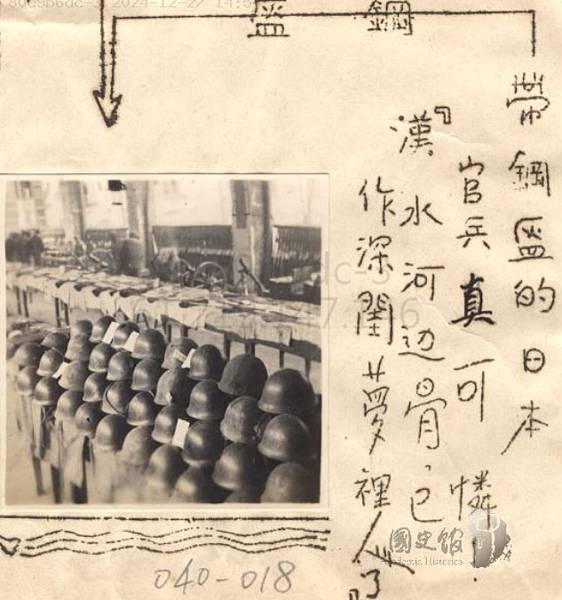 鋼盔
帶鋼盔的日本
官兵真可憐!
『漢水河边骨,已
作深閨夢裡人了』
040-018
國史館
Academia Historica